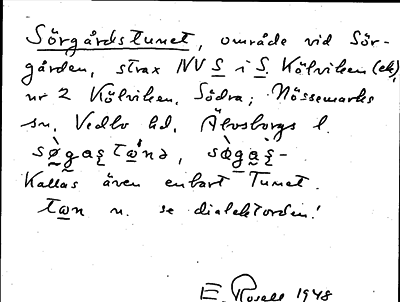 Sörgårdstunet, område vid Sör-
gården, strax NV S i S. Kölviken (ek),
nr 2 Kölviken, Södra; Nössemarks
sn, Vedbo hd, Älvsborgs l.
Kallas även enbart Tunet.
n. se dialektorden!
E. Rosell 1948